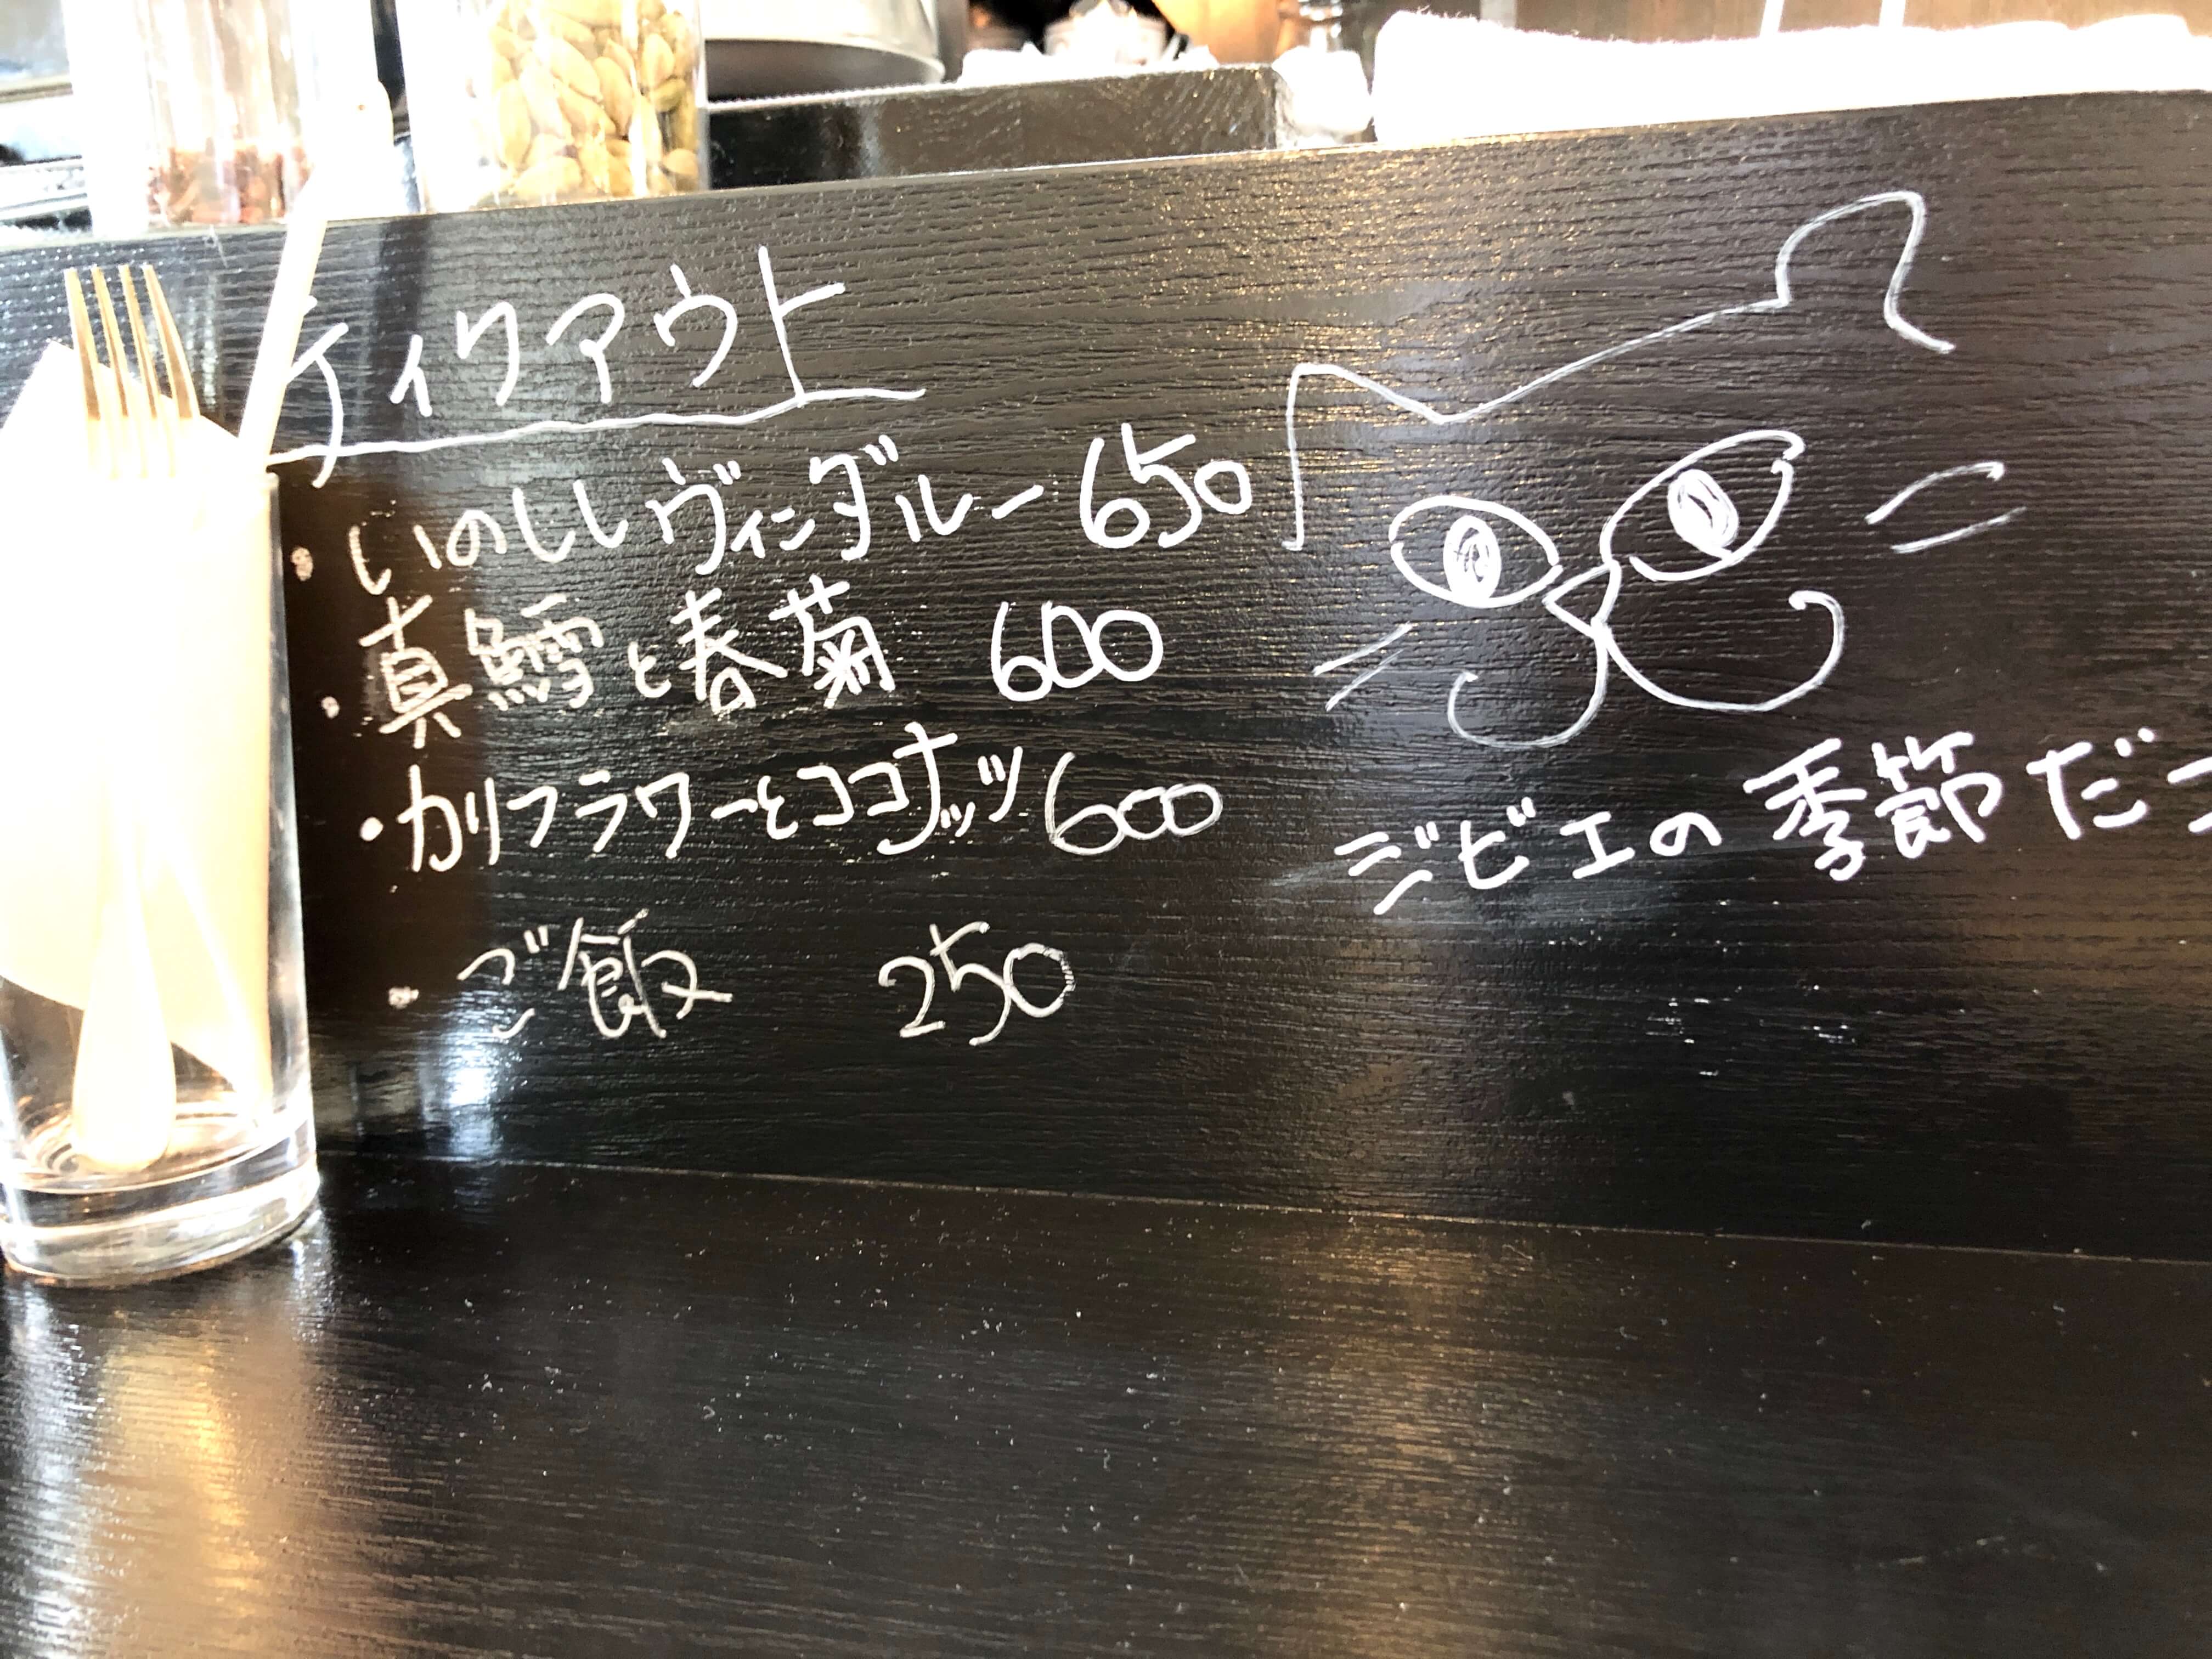 テイクアウト
・いのししヴィンダルー 650
・真鱈と春菊 600
・カリフラワーとココナッツ 600
・ご飯 250
ジビエの季節だ